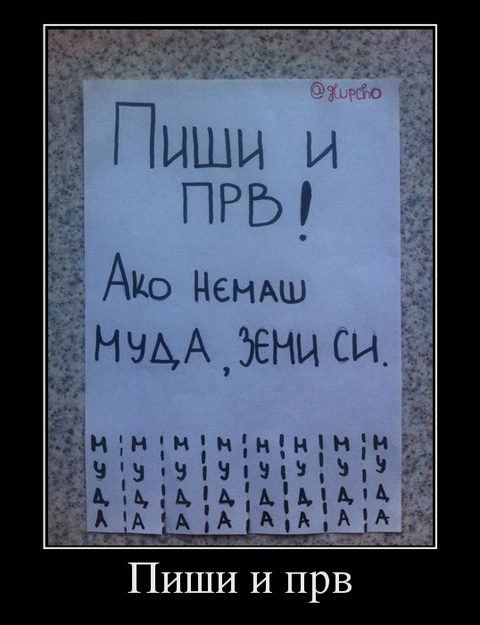 @glupcho
Пиши и
ПРВ!
Ако немаш
МУДА, ЗЕМИ СИ.
МУДА МУДА МУДА МУДА МУДА МУДА МУДА МУДА
Пиши и прв